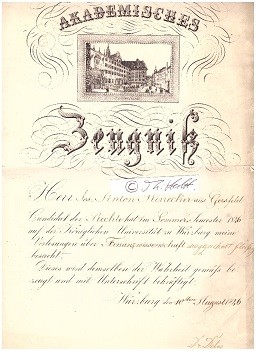 AKADEMISCHES
Zeugniß
© J. K. Herbst.
Herr Jos. Anton aus Gersfeld
Candidat der Rechte hat im Sommer Semester 1846
auf der Königlichen Universität zu Würzburg meine
Vorlesungen über Finanzwissenschaft
besucht.
Dieses wird demselben der Wahrheit gemäß be-
zeugt und mit Unterschrift bekräftigt
Würzburg den 10ten August 1846